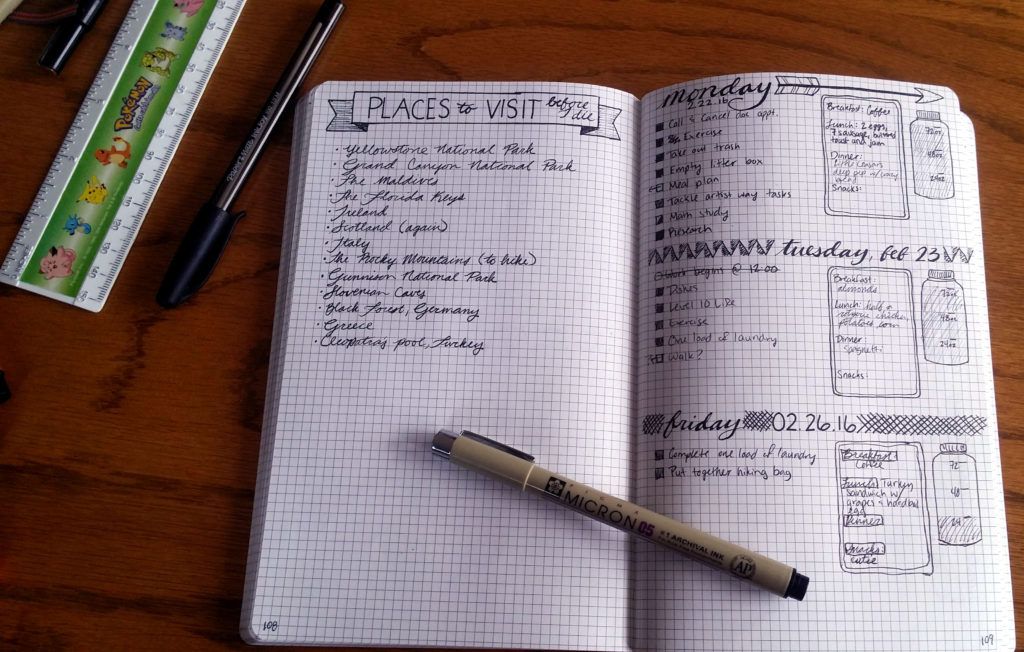 POKéMON
PLACES to VISIT before
I die
· Yellowstone National Park
· Grand Canyon National Park
· The Maldives
· The Florida Keys
· Ireland
· Scotland (again)
· Italy
· The Rocky Mountains (to hike)
· Gunnison National Park
· Slovenian Caves
· Black Forest, Germany
· Greece
· Cleopatras pool, Turkey
108
monday
2.22.16
Call & Cancel doc appt.
Exercise
Take out trash
Empty litter box
Meal plan
Tackle artist way tasks
Main study
Research
Breakfast: Coffee
Lunch: 2 eggs,
toast and jam
Dinner:
Snacks:
72oz
48oz
24oz
tuesday, feb 23
Work begins @ 12:00
Dishes
Level 10 Life
Exercise
One load of laundry
Walk?
Breakfast:
almonds
Lunch: half a
chicken
potatoes, corn
Dinner:
Spaghetti
Snacks:
72oz
48oz
24oz
friday 02.26.16
Complete one load of laundry
Put together hiking bag
Breakfast:
Coffee
Lunch: Turkey
sandwich w/
grapes & hardboil
egg
Dinner
Snacks:
cutie
72
48
24
PIGMA
MICRON 05
#1 ARCHIVAL INK
AP
109